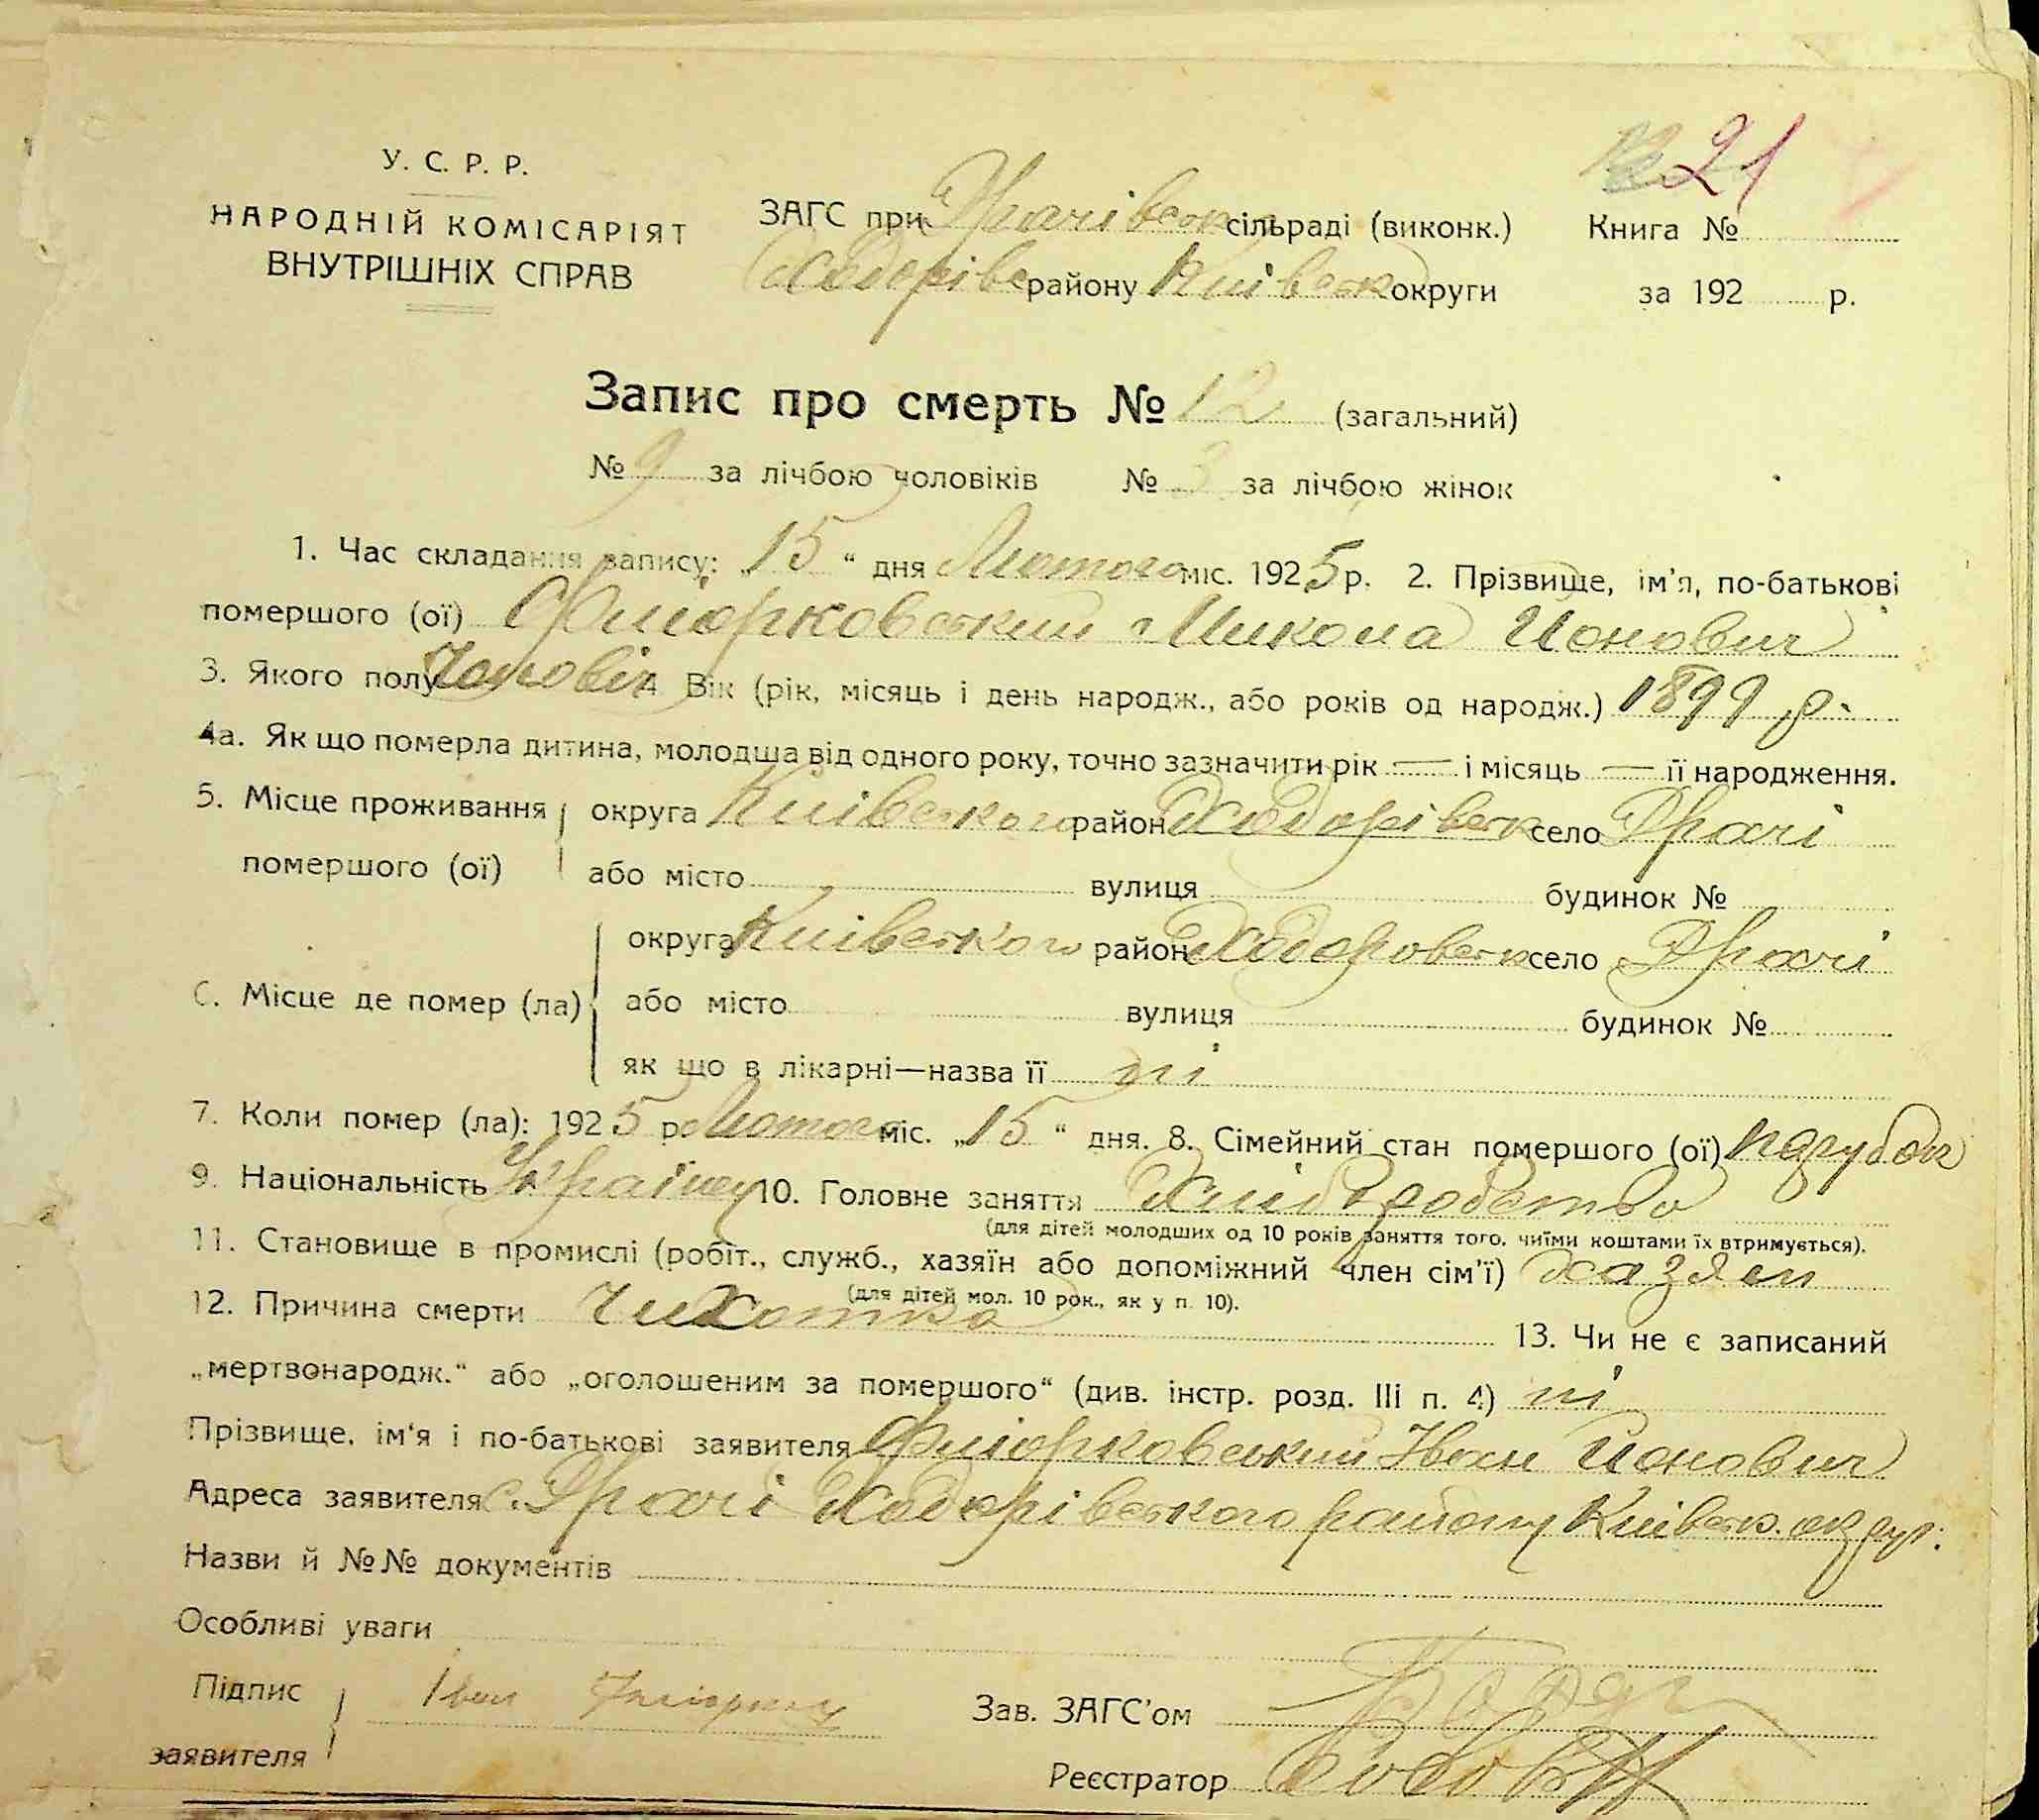 21
У. С. Р. Р.
НАРОДНІЙ КОМІСАРІЯТ
ВНУТРІШНІХ СПРАВ
ЗАГС при Драчівськ сільраді (виконк.) Книга №
Ходорівс району Київськ округи за 192 р.
Запис про смерть № 12 (загальний)
№ 9 за лічбою чоловіків № 3 за лічбою жінок
1. Час складання запису: „15“ дня Лютого міс. 1925 р. 2. Прізвище, ім'я, по-батькові
помершого (ої) Фліорковський Микола Йонович
3. Якого полу Чоловіч 4 Вік (рік, місяць і день народж., або років од народж.) 1899 р.
4а. Як що померла дитина, молодша від одного року, точно зазначити рік — і місяць — її народження.
5. Місце проживання помершого (ої) округа Київського район Ходорівськ село Драчі
або місто вулиця будинок №
6. Місце де помер (ла) округа Київського район Ходоровськ село Драчі
або місто вулиця будинок №
як що в лікарні—назва її ні
7. Коли помер (ла): 1925 р. Лютого міс. „15“ дня. 8. Сімейний стан помершого (ої) парубок
9. Національність Українец 10. Головне заняття Хліборобство
(для дітей молодших од 10 років заняття того, чиїми коштами їх втримується).
11. Становище в промислі (робіт., служб., хазяїн або допоміжний член сім'ї) хазяен
(для дітей мол. 10 рок., як у п. 10).
12. Причина смерти Чихотка 13. Чи не є записаний
„мертвонародж.“ або „оголошеним за помершого“ (див. інстр. розд. III п. 4) ні
Прізвище, ім'я і по-батькові заявителя Фліорковський Іван Йонович
Адреса заявителя с. Драчі Ходорівського району Київськ. округ.
Назви й №№ документів
Особливі уваги
Підпис заявителя Іван
Зав. ЗАГС'ом
Реєстратор